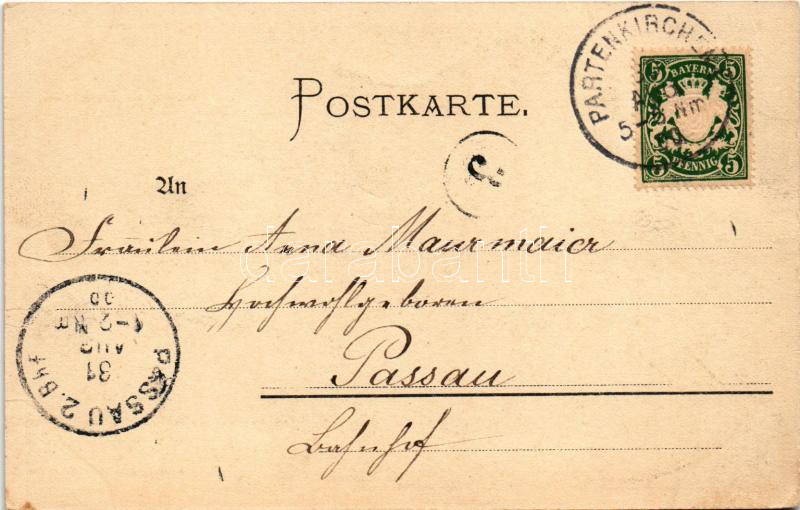 PARTENKIRCHEN
5 BAYERN 5
5 PFENNIG 5
POSTKARTE.
An
Fräulein Anna Maurmaier
Hochwohlgeboren
Passau
Bahnhof
PASSAU 2. Bhf
31
AUG
1-2 Nm
00
darabanth